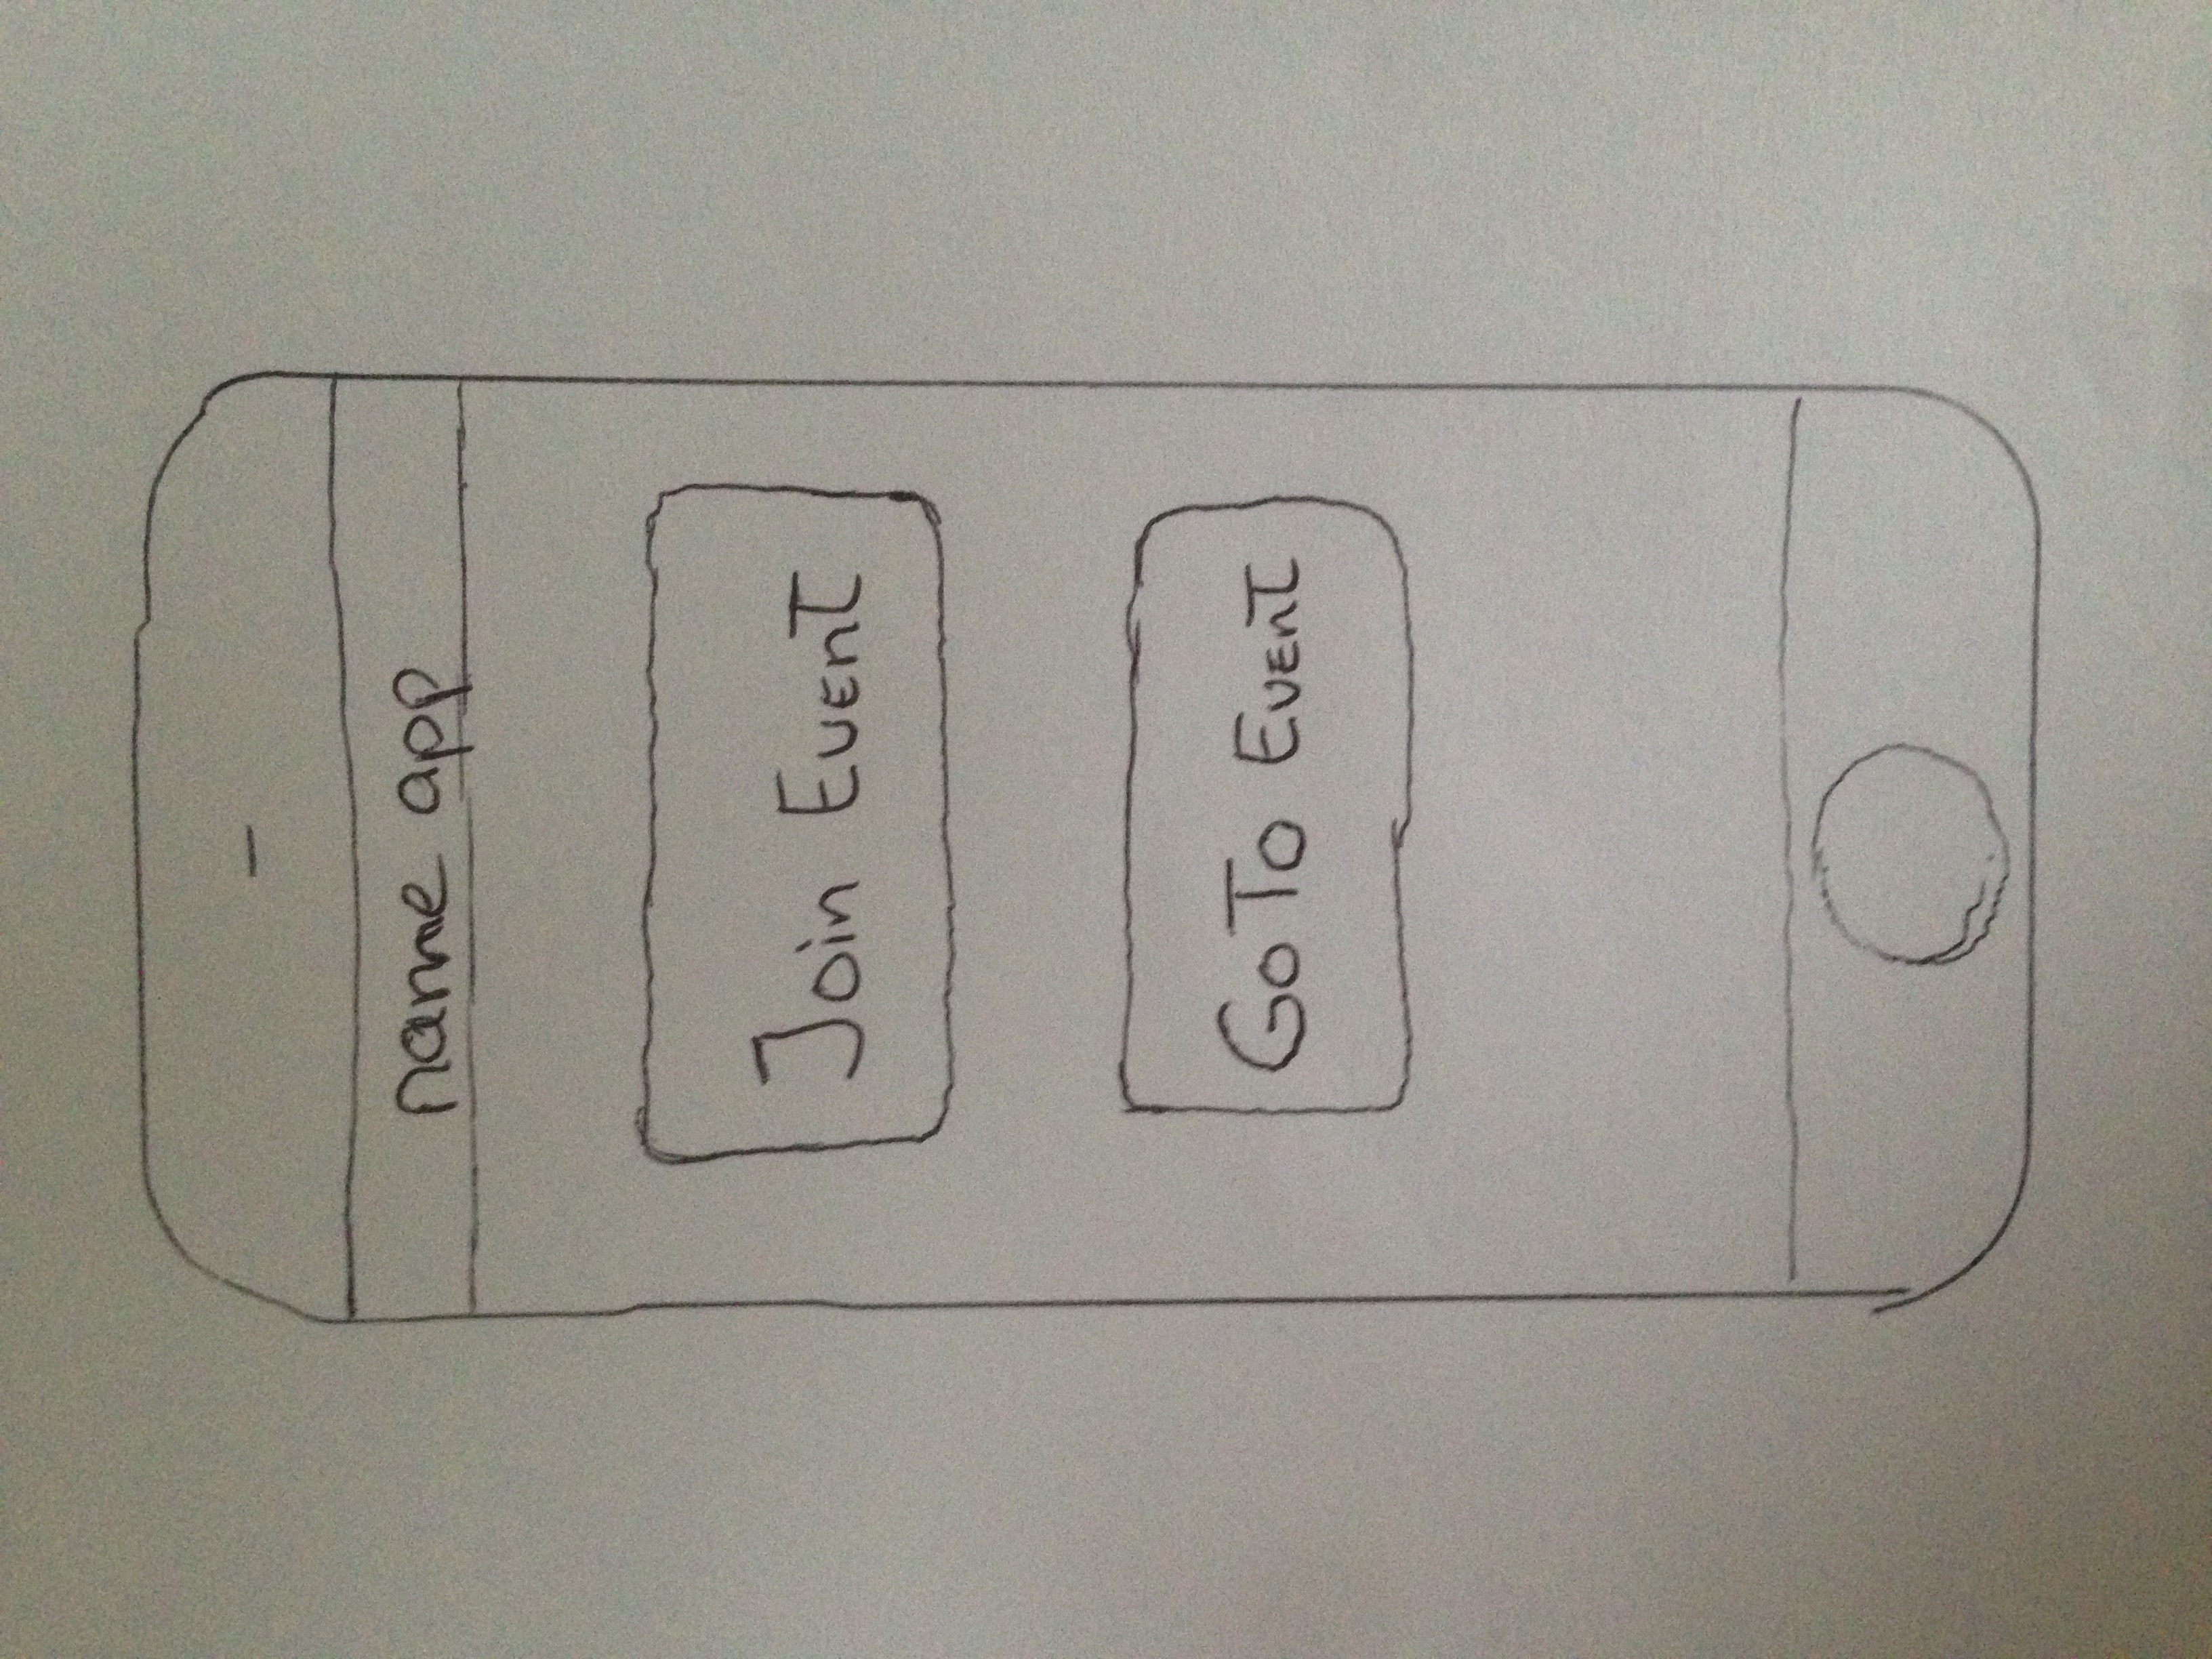 name app
Join Event
Go To Event